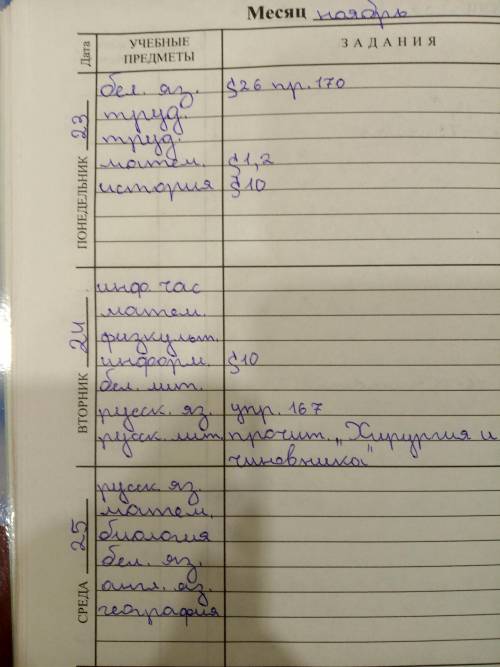 Месяц ноябрь
Дата УЧЕБНЫЕ ПРЕДМЕТЫ ЗАДАНИЯ
ПОНЕДЕЛЬНИК 23
бел. яз. §26 пр. 170
труд.
труд.
матем. §1,2
история §10
ВТОРНИК 24
инф. час
матем.
физкульт.
информ. §10
бел. лит.
русск. яз. упр. 167
русск. лит. прочит. „Хирургия и
чиновника"
СРЕДА 25
русск. яз.
матем.
биология
бел. яз.
англ. яз.
география